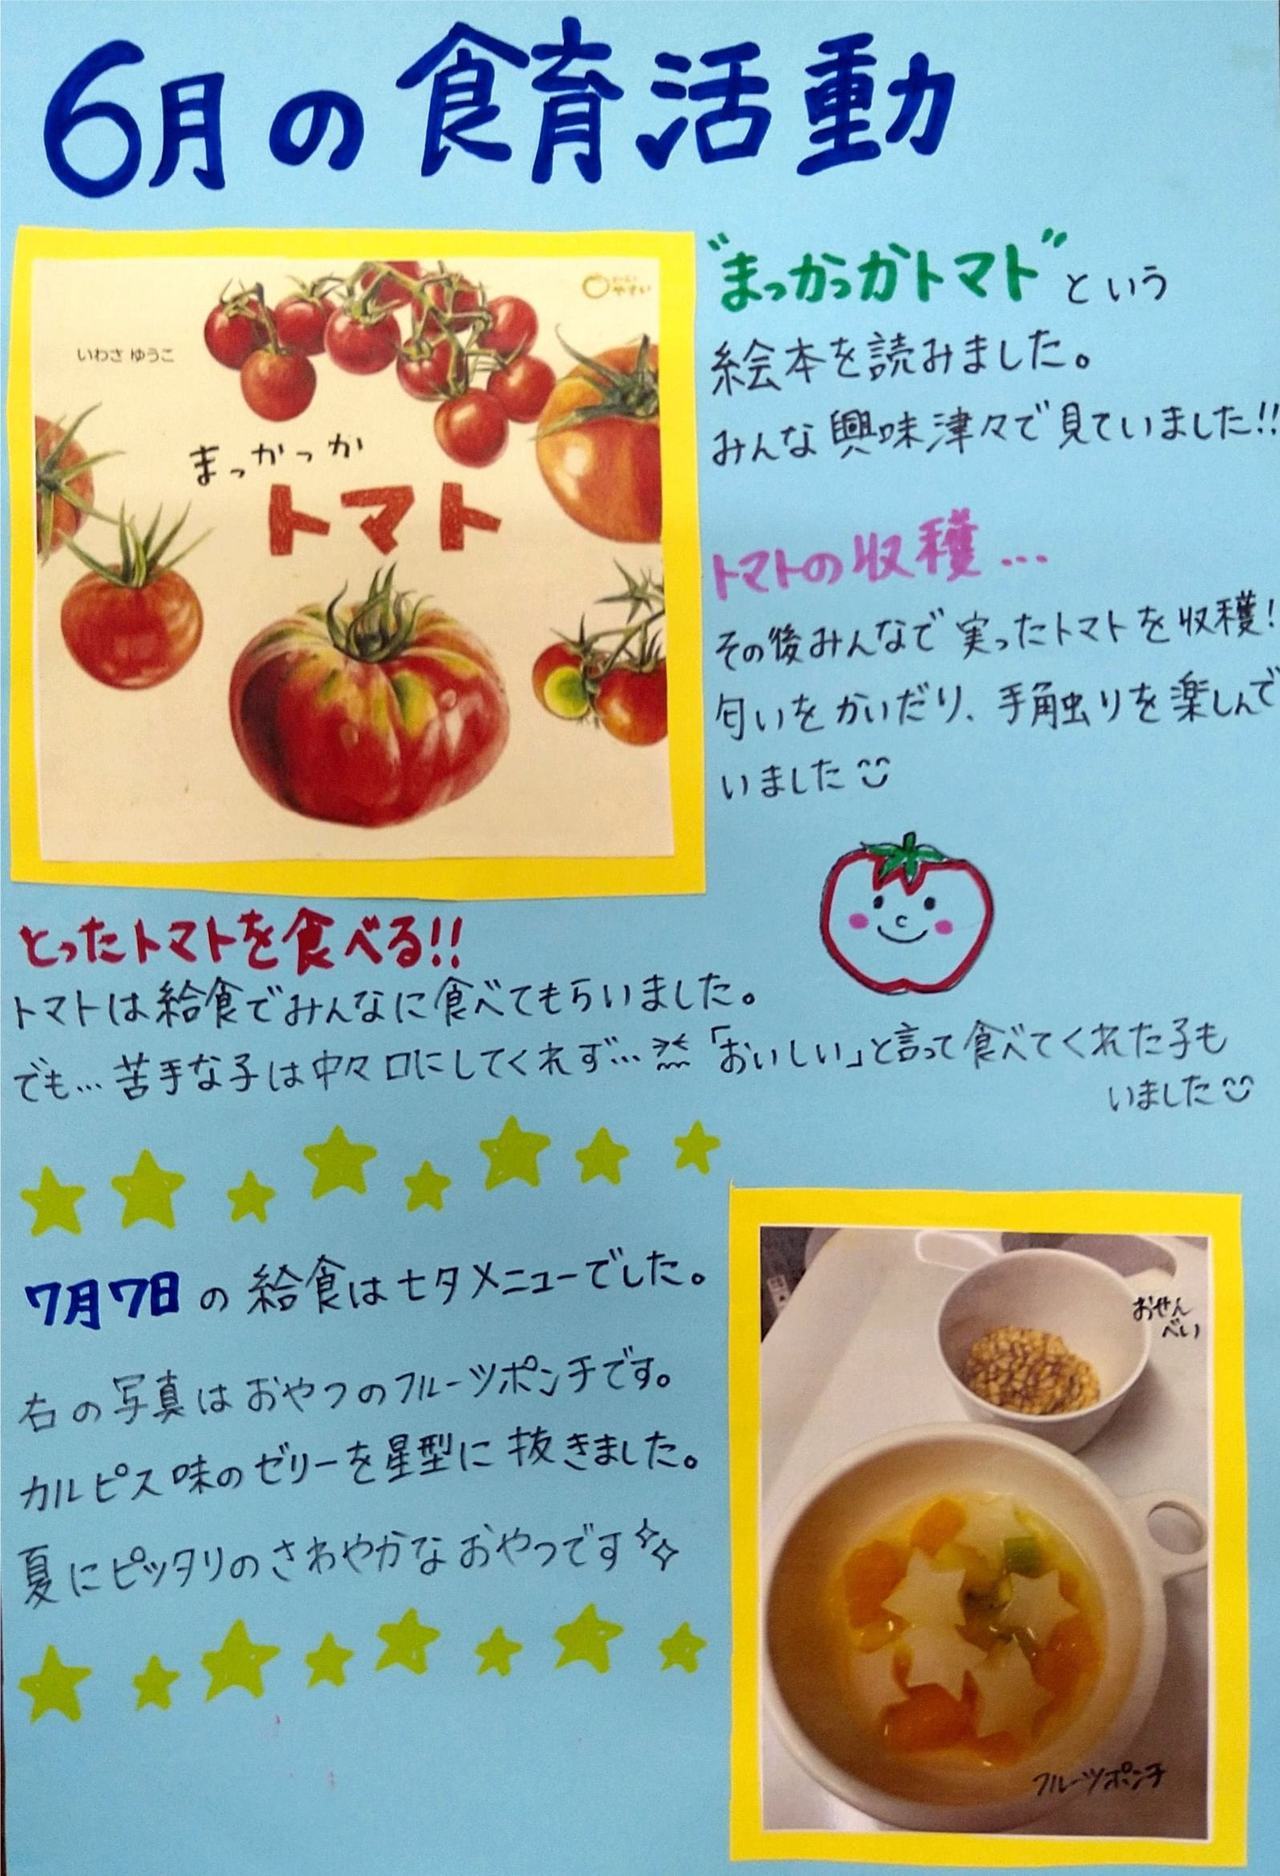 6月の食育活動
いわさ ゆうこ
まっかっか
トマト
"まっかっかトマト"という
絵本を読みました。
みんな興味津々で見ていました!!
トマトの収穫…
その後みんなで実ったトマトを収穫!
匂いをかいだり、手触りを楽しんで
いました
とったトマトを食べる!!
トマトは給食でみんなに食べてもらいました。
でも…苦手な子は中々口にしてくれず…「おいしい」と言って食べてくれた子も
いました
7月7日の給食は七夕メニューでした。
右の写真はおやつのフルーツポンチです。
カルピス味のゼリーを星型に抜きました。
夏にピッタリのさわやかなおやつです
おせん
べい
フルーツポンチ